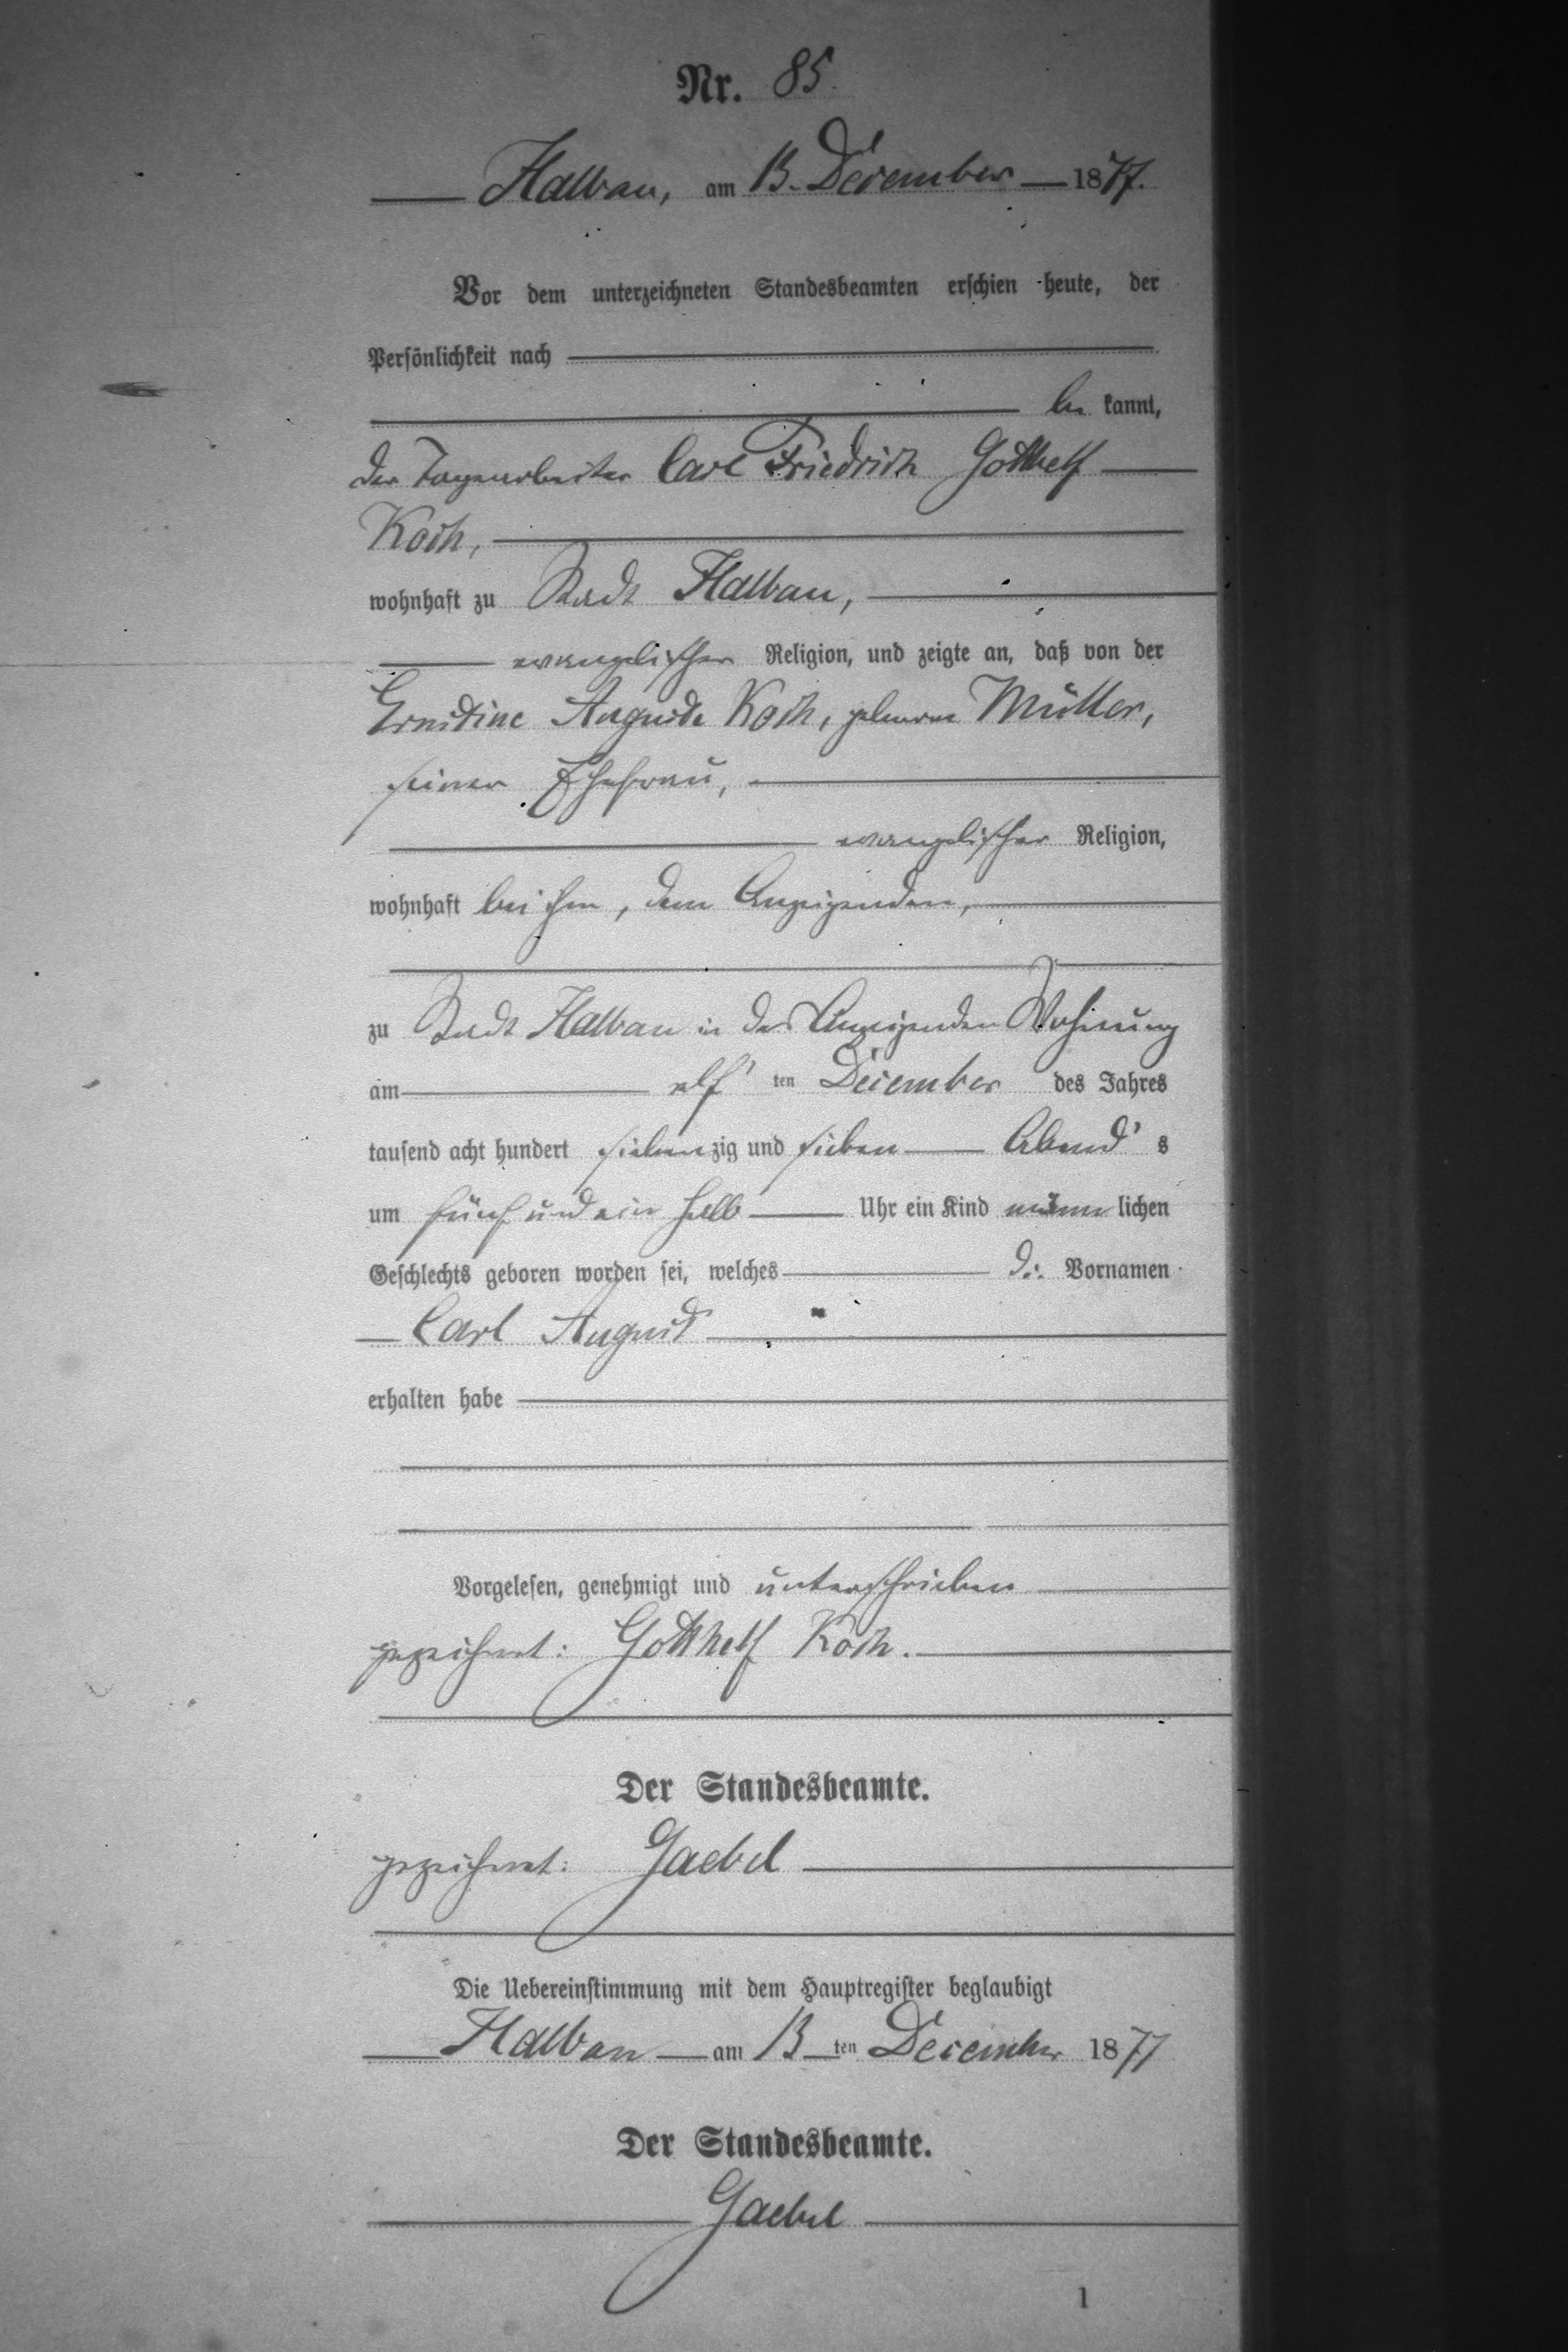 Nr. 85.
Halbau, am 13. December 1877.
Vor dem unterzeichneten Standesbeamten erschien heute, der
Persönlichkeit nach
be kannt,
der Tagearbeiter Carl Friedrich Gotthelf
Koch,
wohnhaft zu Stadt Halbau,
evangelischer Religion, und zeigte an, daß von der
Ernstine Auguste Koch, geborene Müller,
seiner Ehefrau,
evangelischer Religion,
wohnhaft bei ihm, dem Anzeigenden,
zu Stadt Halbau in des Anzeigenden Wohnung
am elf ten December des Jahres
tausend acht hundert sieben zig und sieben Abend s
um fünf und ein halb Uhr ein Kind männ lichen
Geschlechts geboren worden sei, welches die Vornamen
Carl August
erhalten habe
Vorgelesen, genehmigt und unterschrieben
gezeichnet: Gotthelf Koch.
Der Standesbeamte.
gezeichnet: Gaebel
Die Uebereinstimmung mit dem Hauptregister beglaubigt
Halbau am 13 ten December 1877
Der Standesbeamte.
Gaebel
1